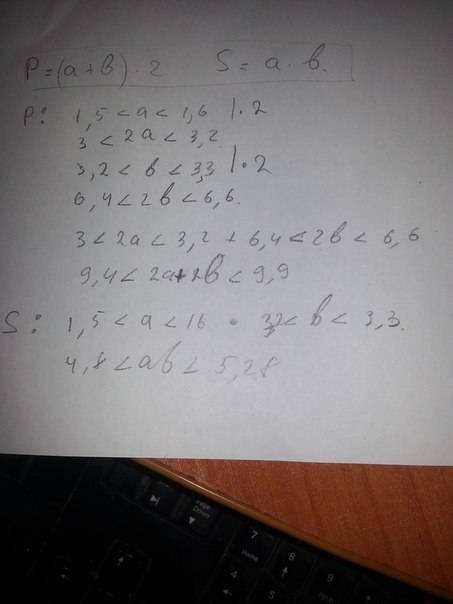 P=(a+b)·2 S=a·b.
P: 1,5<a<1,6 |·2
3<2a<3,2
3,2<b<3,3 |·2
6,4<2b<6,6.
3<2a<3,2 + 6,4<2b<6,6
9,4<2a+2b<9,9
S: 1,5<a<16 · 3,2<b<3,3.
4,8<ab<5,28
Page
Down
7
Home
8
9
4
5